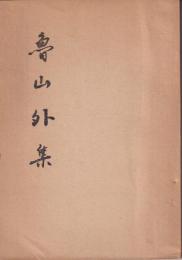 魯山外集